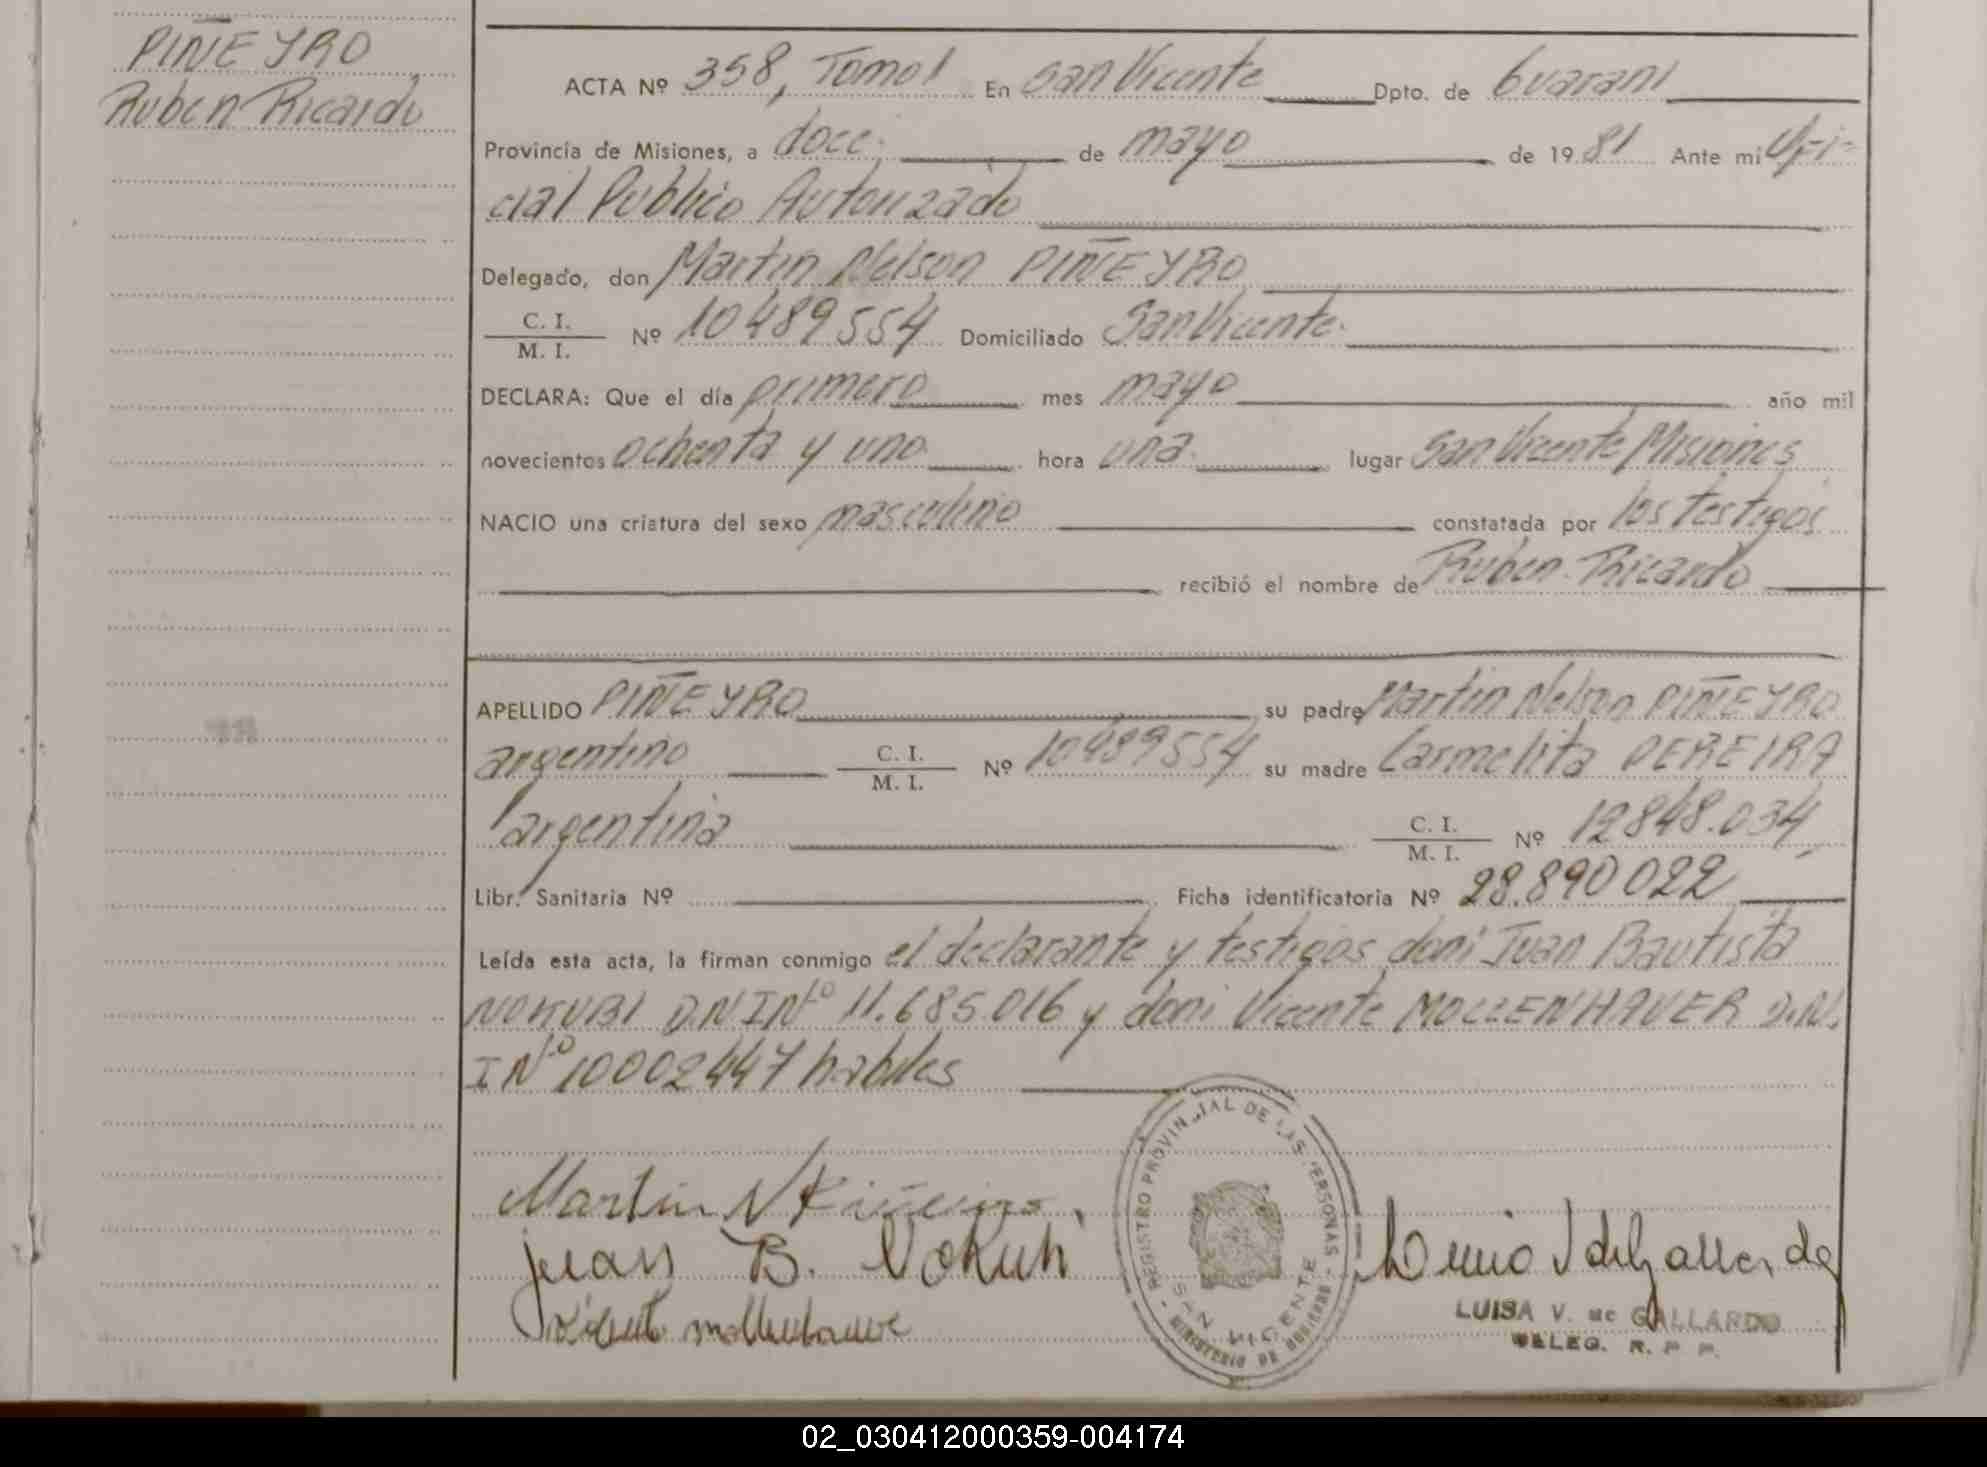 PIÑEYRO
Ruben Ricardo
ACTA Nº 358, Tomo I En San Vicente Dpto. de Guarani
Provincia de Misiones, a doce de mayo de 1981 Ante mi Ofi-
cial Público Autorizado
Delegado, don Martin Nelson PIÑEYRO
C. I.
M. I. Nº 10489554 Domiciliado San Vicente.
DECLARA: Que el día primero mes mayo año mil
novecientos ochenta y uno hora una lugar San Vicente Misiones
NACIO una criatura del sexo masculino constatada por los testigos
recibió el nombre de Ruben Ricardo
APELLIDO PIÑEYRO su padre Martin Nelson PIÑEYRO
argentino C. I.
M. I. Nº 10489554 su madre Carmelita PEREIRA
argentina C. I.
M. I. Nº 12848.034,
Libr. Sanitaria Nº Ficha identificatoria Nº 28.890022
Leída esta acta, la firman conmigo el declarante y testigos don: Juan Bautista
NOKUBI D.N.I Nº 11.685.016 y don: Vicente MOLLENHAUER D.N.
I Nº 10002447 habiles
Martin N Piñeiro
Juan B. Nokubi
Vicente mollenhauer
REGISTRO PROVINCIAL DE LAS PERSONAS
SAN VICENTE
MINISTERIO DE GOBIERNO
LUISA V. de GALLARDO
DELEG. R. P. P.
02_030412000359-004174